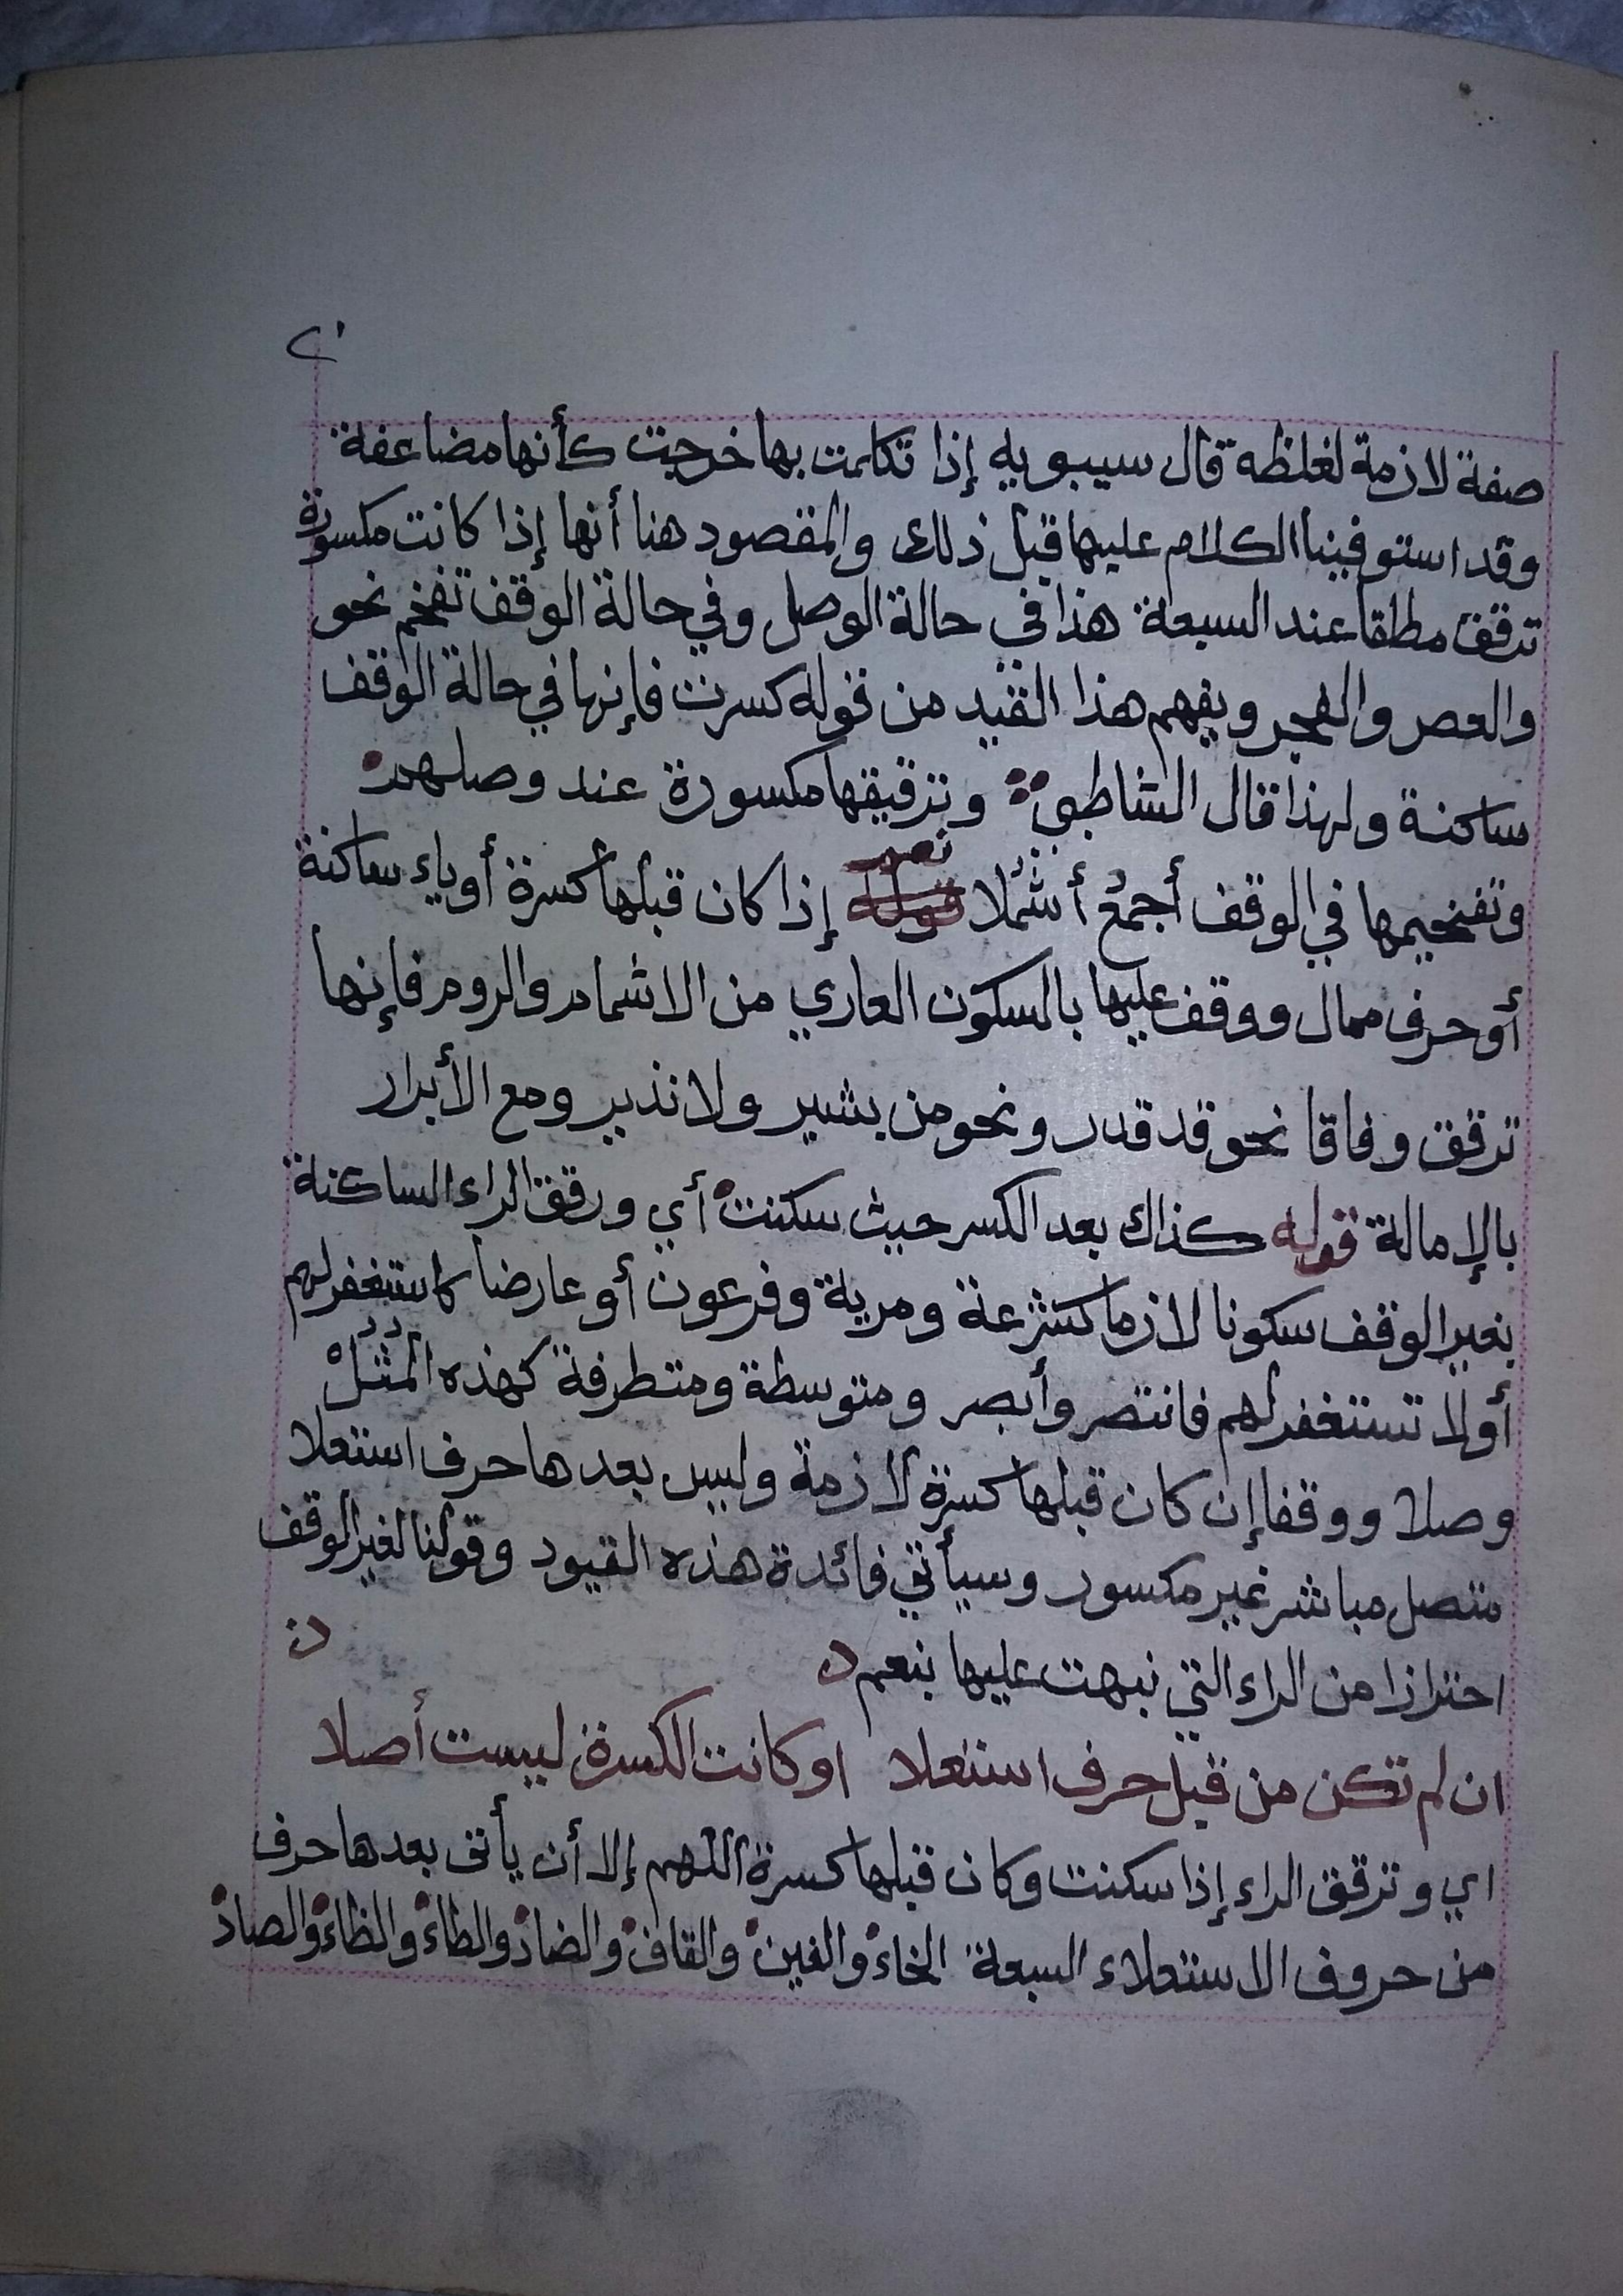 ٢٠
صفة لازمة لغلظه قال سيبويه إذا تكلمت بها خرجت كأنها مضاعفة
وقد استوفينا الكلام عليها قبل ذلك والمقصود هنا أنها إذا كانت مكسورة
ترقق مطلقا عند السبعة هذا في حالة الوصل وفي حالة الوقف تفخم نحو
والعصر والفجر ويفهم هذا القيد من قوله كسرت فإنها في حالة الوقف
ساكنة ولهذا قال الشاطبي وترقيقها مكسورة عند وصلهم
وتفخيمها في الوقف أجمع أشملا نعم إذا كان قبلها كسرة أو ياء ساكنة
أو حرف ممال ووقف عليها بالسكون العاري من الاشمام والروم فإنها
ترقق وفاقا نحو قد قدر ونحو من بشير ولا نذير ومع الأبرار
بالإمالة قوله كذاك بعد الكسر حيث سكنت أي ورقق الراء الساكنة
بغير الوقف سكونا لازما كشرعة ومرية وفرعون أو عارضا كاستغفر لهم
أولا تستغفر لهم فانتصر وأبصر ومتوسطة ومتطرفة كهذه المثل
وصلا ووقفا إن كان قبلها كسرة لازمة وليس بعدها حرف استعلا
متصل مباشر غير مكسور وسيأتي فائدة هذه القيود وقولنا لغير الوقف
احترازا من الراء التي نبهت عليها بنعم
ان لم تكن من قبل حرف استعلا او كانت الكسرة ليست أصلا
اي وترقق الراء إذا سكنت وكان قبلها كسرة اللهم إلا أن يأتى بعدها حرف
من حروف الاستعلاء السبعة الخاء والغين والقاف والضاد والطاء والظاء والصاد